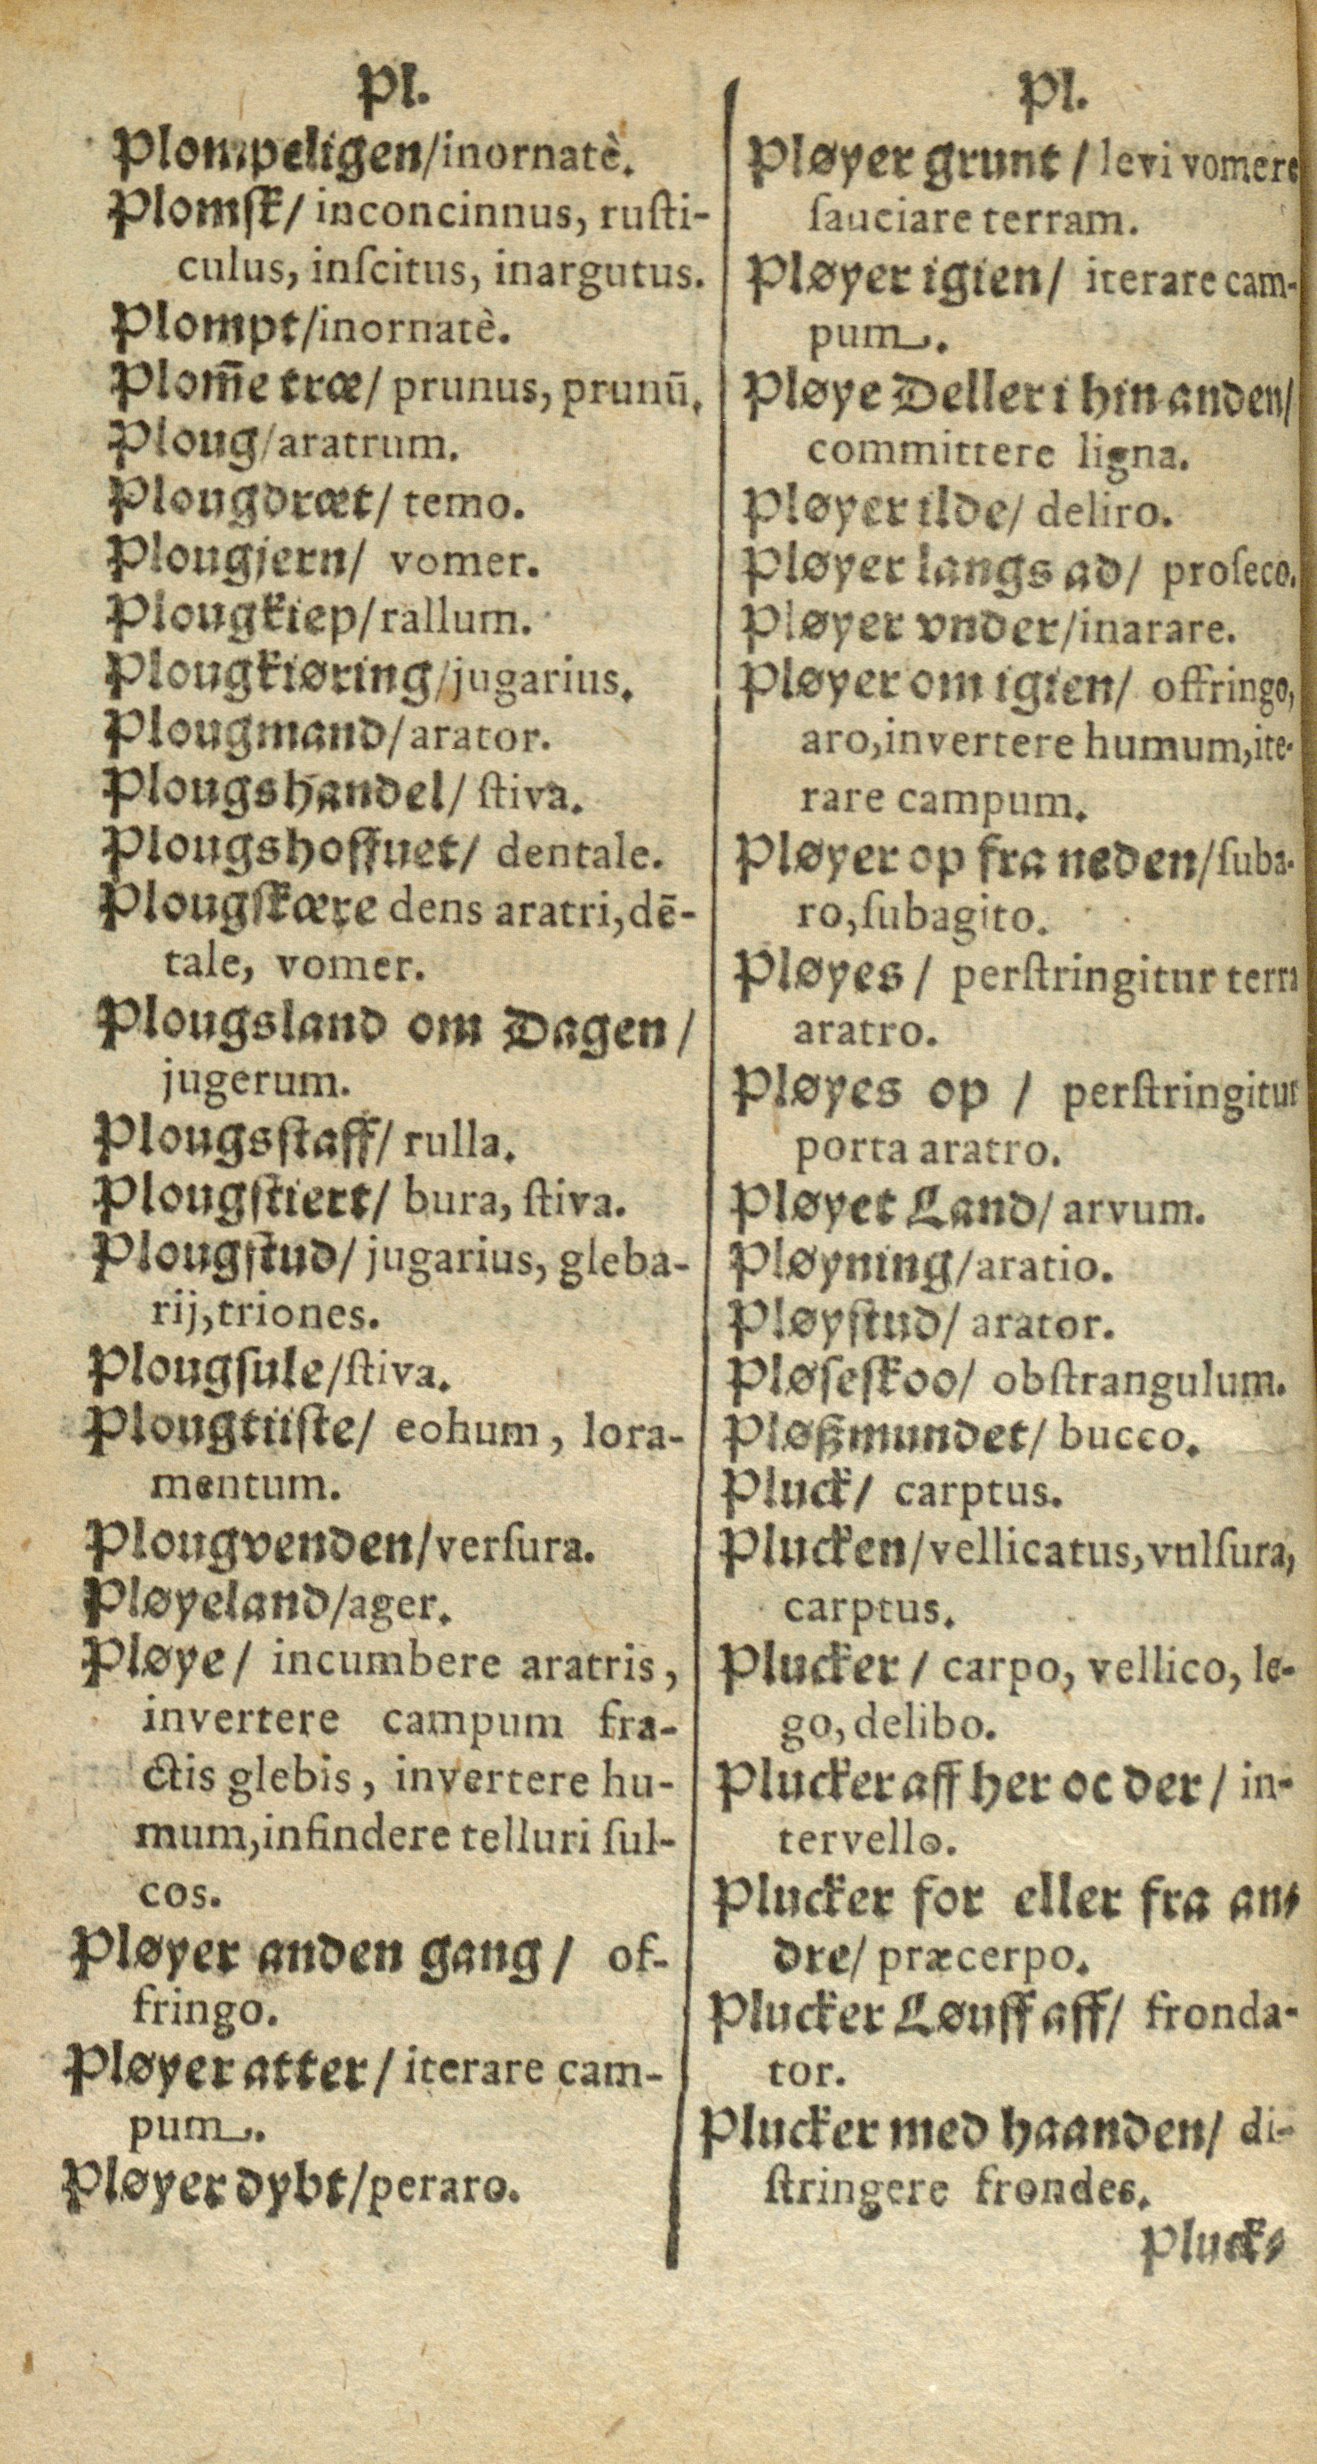 Pl.
Plompeligen/inornatè.
Plomſk/ inconcinnus, ruſti-
culus, inſcitus, inargutus.
Plompt/inornatè.
Plom̄e træ/ prunus, prunū.
Ploug/aratrum.
Plougdræt/ temo.
Plougjern/ vomer.
Plougkiep/rallum.
Plougkiøring/jugarius.
Plougmand/arator.
Plougshandel/ ſtiva.
Plougshoffuet/ dentale.
Plougſkære dens aratri, dē-
tale, vomer.
Plougsland om Dagen/
jugerum.
Plougsſtaff/ rulla.
Plougſtiert/ bura, ſtiva.
Plougſtud/ jugarius, gleba-
rij, triones.
Plougſule/ſtiva.
Plougtiiſte/ eohum, lora-
mentum.
Plougvenden/verſura.
Pløyeland/ager.
Pløye/ incumbere aratris,
invertere campum fra-
ctis glebis, invertere hu-
mum, infindere telluri ſul-
cos.
Pløyer anden gang/ of-
fringo.
Pløyer atter/ iterare cam-
pum.
Pløyer dybt/peraro.
Pl.
Pløyer grunt/ levi vomere
ſauciare terram.
Pløyer igien/ iterare cam-
pum.
Pløye Deller i hin anden/
committere ligna.
Pløyer ilde/ deliro.
Pløyer langs ad/ proſeco.
Pløyer vnder/inarare.
Pløyer om igien/ offringo,
aro, invertere humum, ite-
rare campum.
Pløyer op fra neden/ſuba-
ro, ſubagito.
Pløyes/ perſtringitur terra
aratro.
Pløyes op/ perſtringitur
porta aratro.
Pløyet Land/ arvum.
Pløyning/aratio.
Pløyſtud/ arator.
Pløſeſkoo/ obſtrangulum.
Pløßmundet/ bucco.
Pluck/ carptus.
Plucken/vellicatus, vulſura,
carptus.
Plucker/ carpo, vellico, le-
go, delibo.
Plucker aff her oc der/ in-
tervello.
Plucker for eller fra an-
dre/ præcerpo.
Plucker Løuff aff/ fronda-
tor.
Plucker med haanden/ di-
ſtringere frondes.
Pluck-